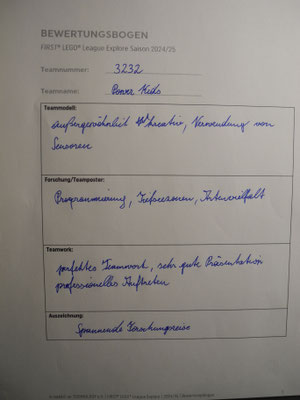 BEWERTUNGSBOGEN
FIRST® LEGO® League Explore Saison 2024/25
Teamnummer: 3232
Teamname: Power Kids
Teammodell:
außergewöhnlich kreativ, Verwendung von
Sensoren
Forschung/Teamposter:
Programmierung, Tiefseezonen, Artenvielfalt
Teamwork:
perfektes Teamwork, sehr gute Präsentation
professionelles Auftreten
Auszeichnung:
Spannende Forschungsreise